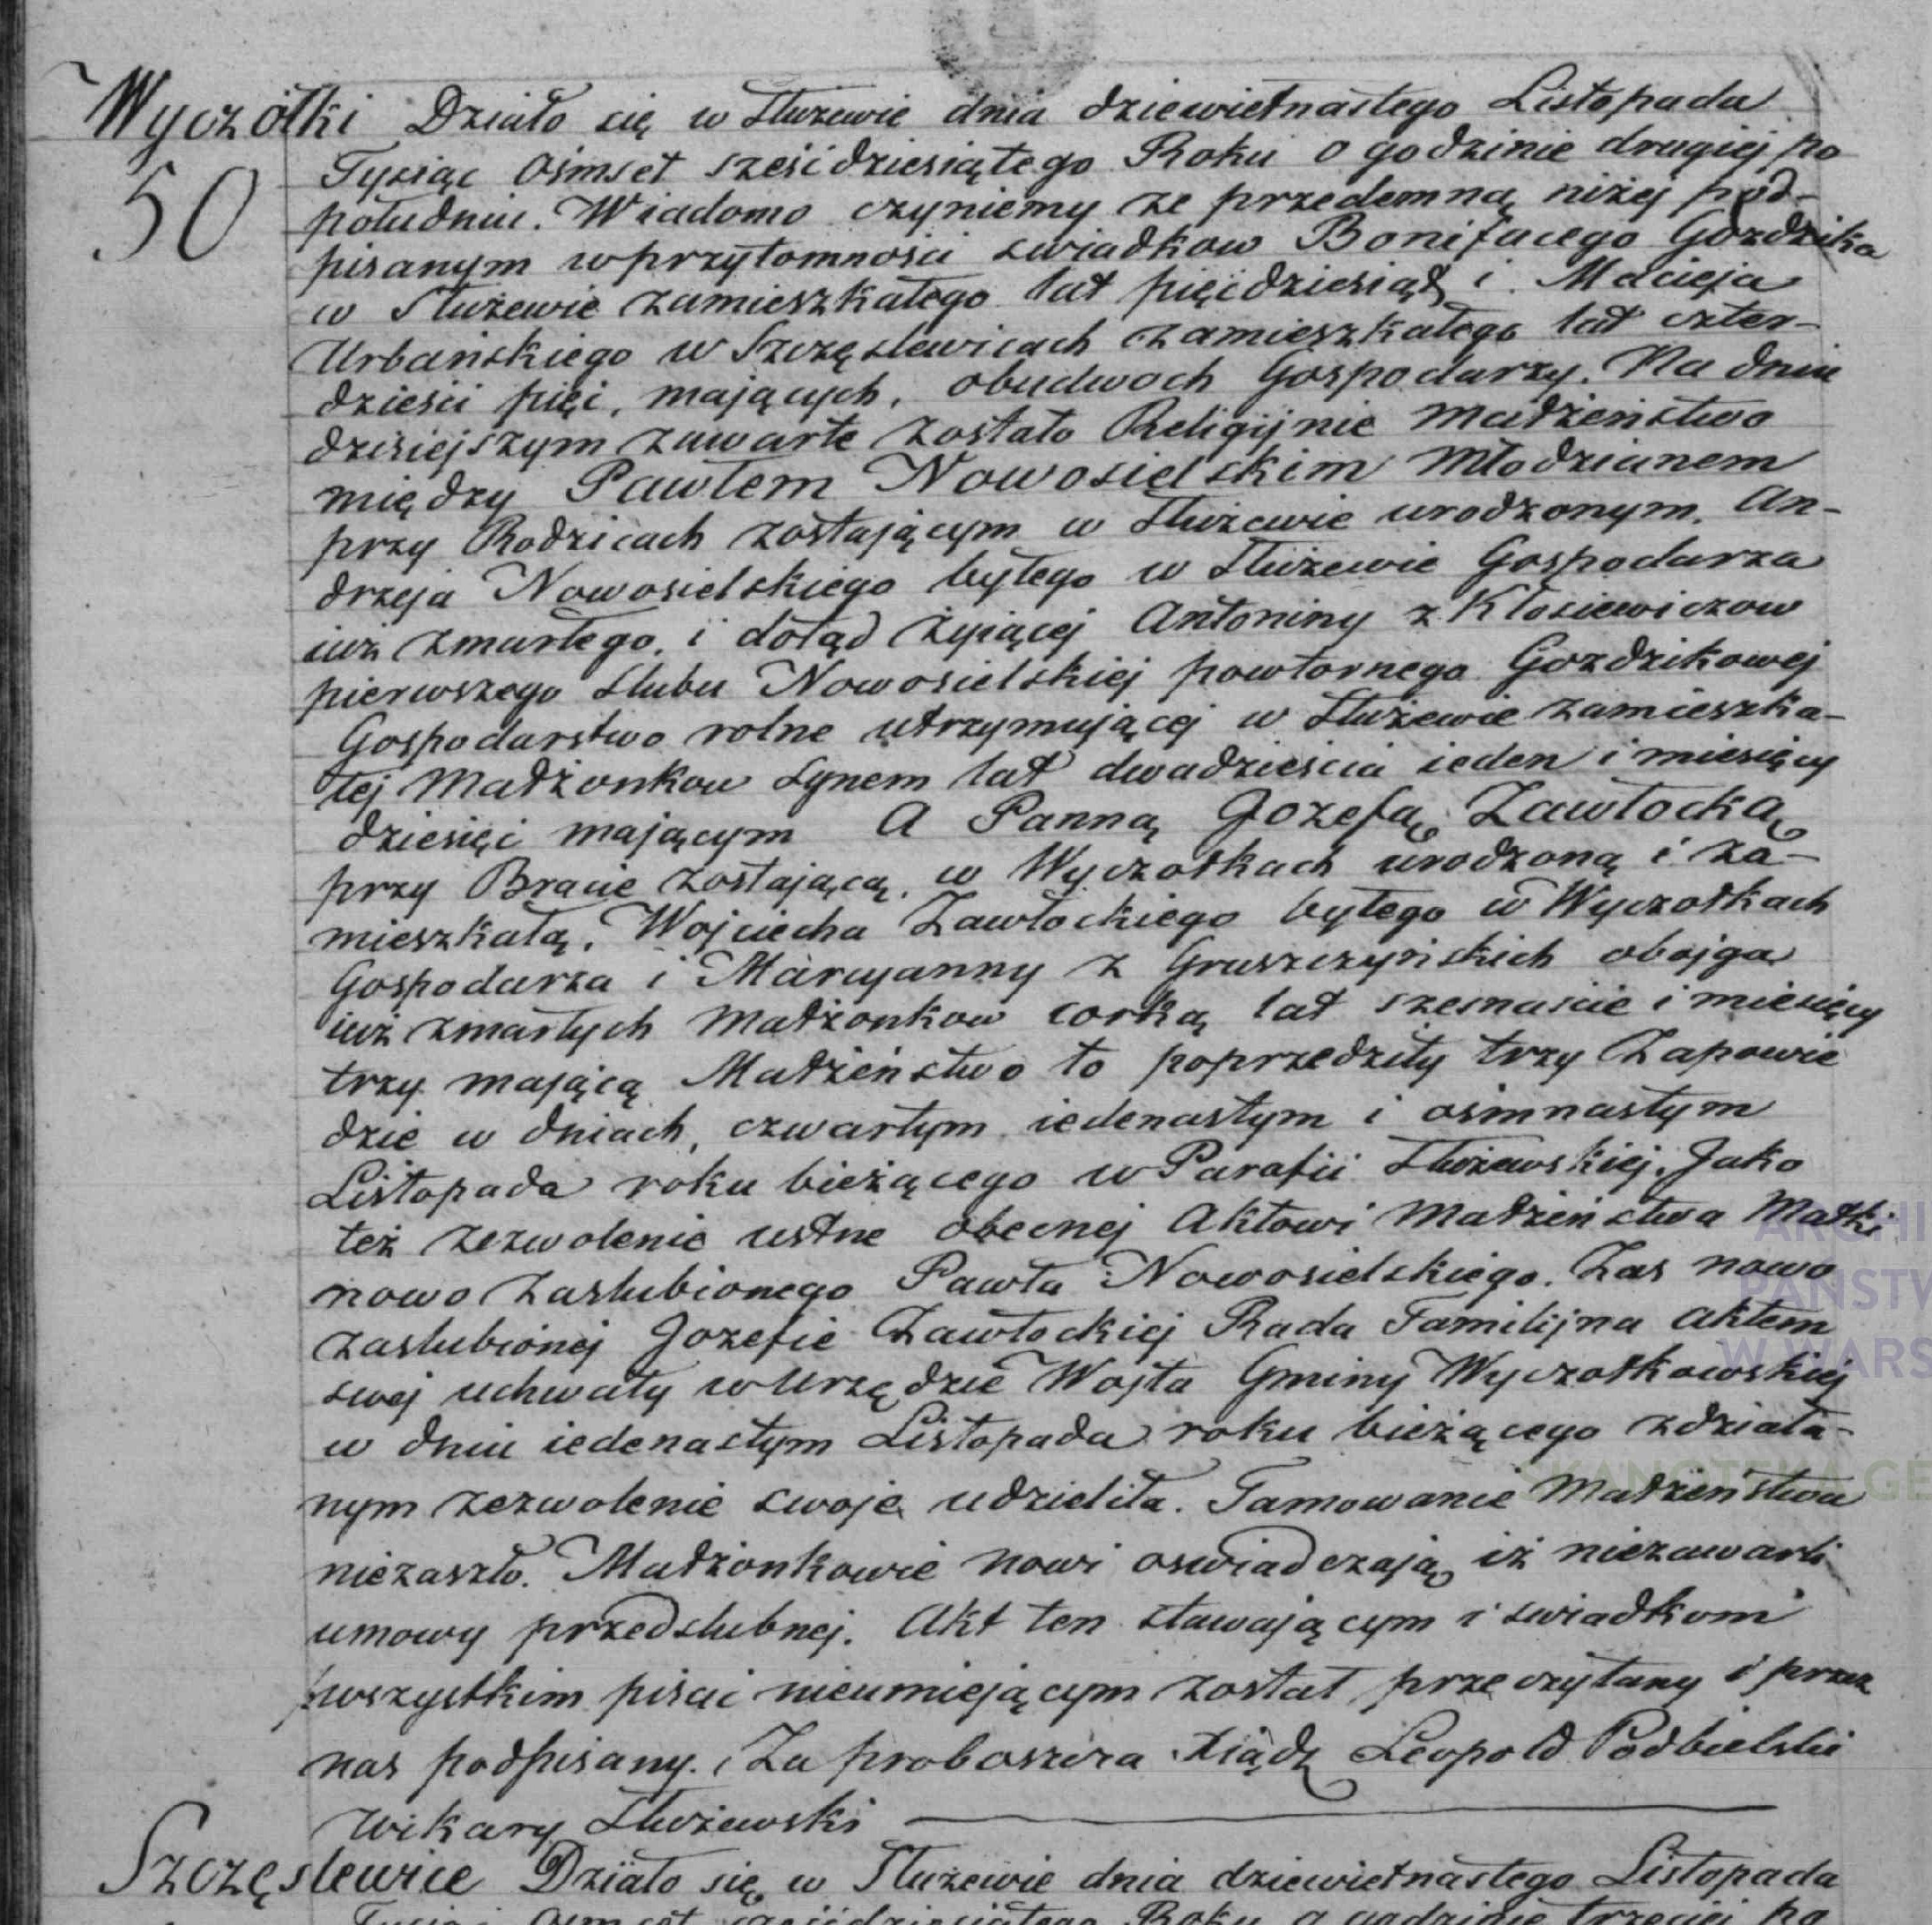 Wyczółki Działo się w Służewie dnia dziewietnastego Listopada
50 Tysiąc Osmset sześćdziesiątego Roku o godzinie drugiej po
południu. Wiadomo czyniemy ze przedemną niżej pod-
pisanym w przytomności swiadkow Bonifacego Gozdzika
w Służewie zamieszkałego lat pięćdziesiąt i Macieja
Urbańskiego w Szczęslewicach zamieszkałego lat czter-
dzieści pięć, mających, obudwoch Gospodarzy. Na dniu
dzisiejszym zawarte zostało Religijnie Małżeństwo
między Pawłem Nowosielskim Młodzianem
przy Rodzicach zostającym w Służewie urodzonym. An-
drzeja Nowosielskiego byłego w Służewie Gospodarza
iuż zmarłego, i dotąd żyiącej Antoniny z Kłosiewiczow
pierwszego slubu Nowosielskiej powtornego Gozdzikowej
Gospodarstwo rolne utrzymującej w Służewie zamieszka-
łej Małżonkow synem lat dwadzieścia ieden i miesięcy
dziesięć mającym A Panną Jozefą Zawłocką
przy Bracie zostającą, w Wyczołkach urodzoną i za-
mieszkałą, Wojciecha Zawłockiego byłego w Wyczołkach
Gospodarza i Maryanny z Gruszczyńskich obojga
iuż zmarłych Małżonkow corką lat szesnaście i miesięcy
trzy mającą Małżeństwo to poprzedziły trzy Zapowie
dzie w dniach, czwartym iedenastym i osimnastym
Listopada roku bieżącego w Parafii Służewskiej. Jako
też zezwolenie ustne obecnej Aktowi Małżeństwa Matki
nowo zaslubionego Pawła Nowosielskiego. Zas nowo
zaslubionej Jozefie Zawłockiej Rada Familijna Aktem
swej uchwały w Urzędzie Wojta Gminy Wyczołkowskiej
w dniu iedenastym Listopada roku bieżącego zdziała-
nym zezwolenie swoje udzieliła. Tamowanie Małżeństwa
niezaszło. Małżonkowie nowi oswiadczają iż niezawarli
umowy przedslubnej. Akt ten stawającym i swiadkom
wszystkim pisać nieumiejącym został przeczytany i przez
nas podpisany. Za proboszcza Xiądz Leopold Podbielski
Wikary Służewski
Szczęslewice Działo się w Służewie dnia dziewietnastego Listopada
Tysiąc Osmset sześćdziesiątego Roku o godzinie trzeciej po
ARCHI
PAŃSTW
W WARS
SKANOTEKA GE